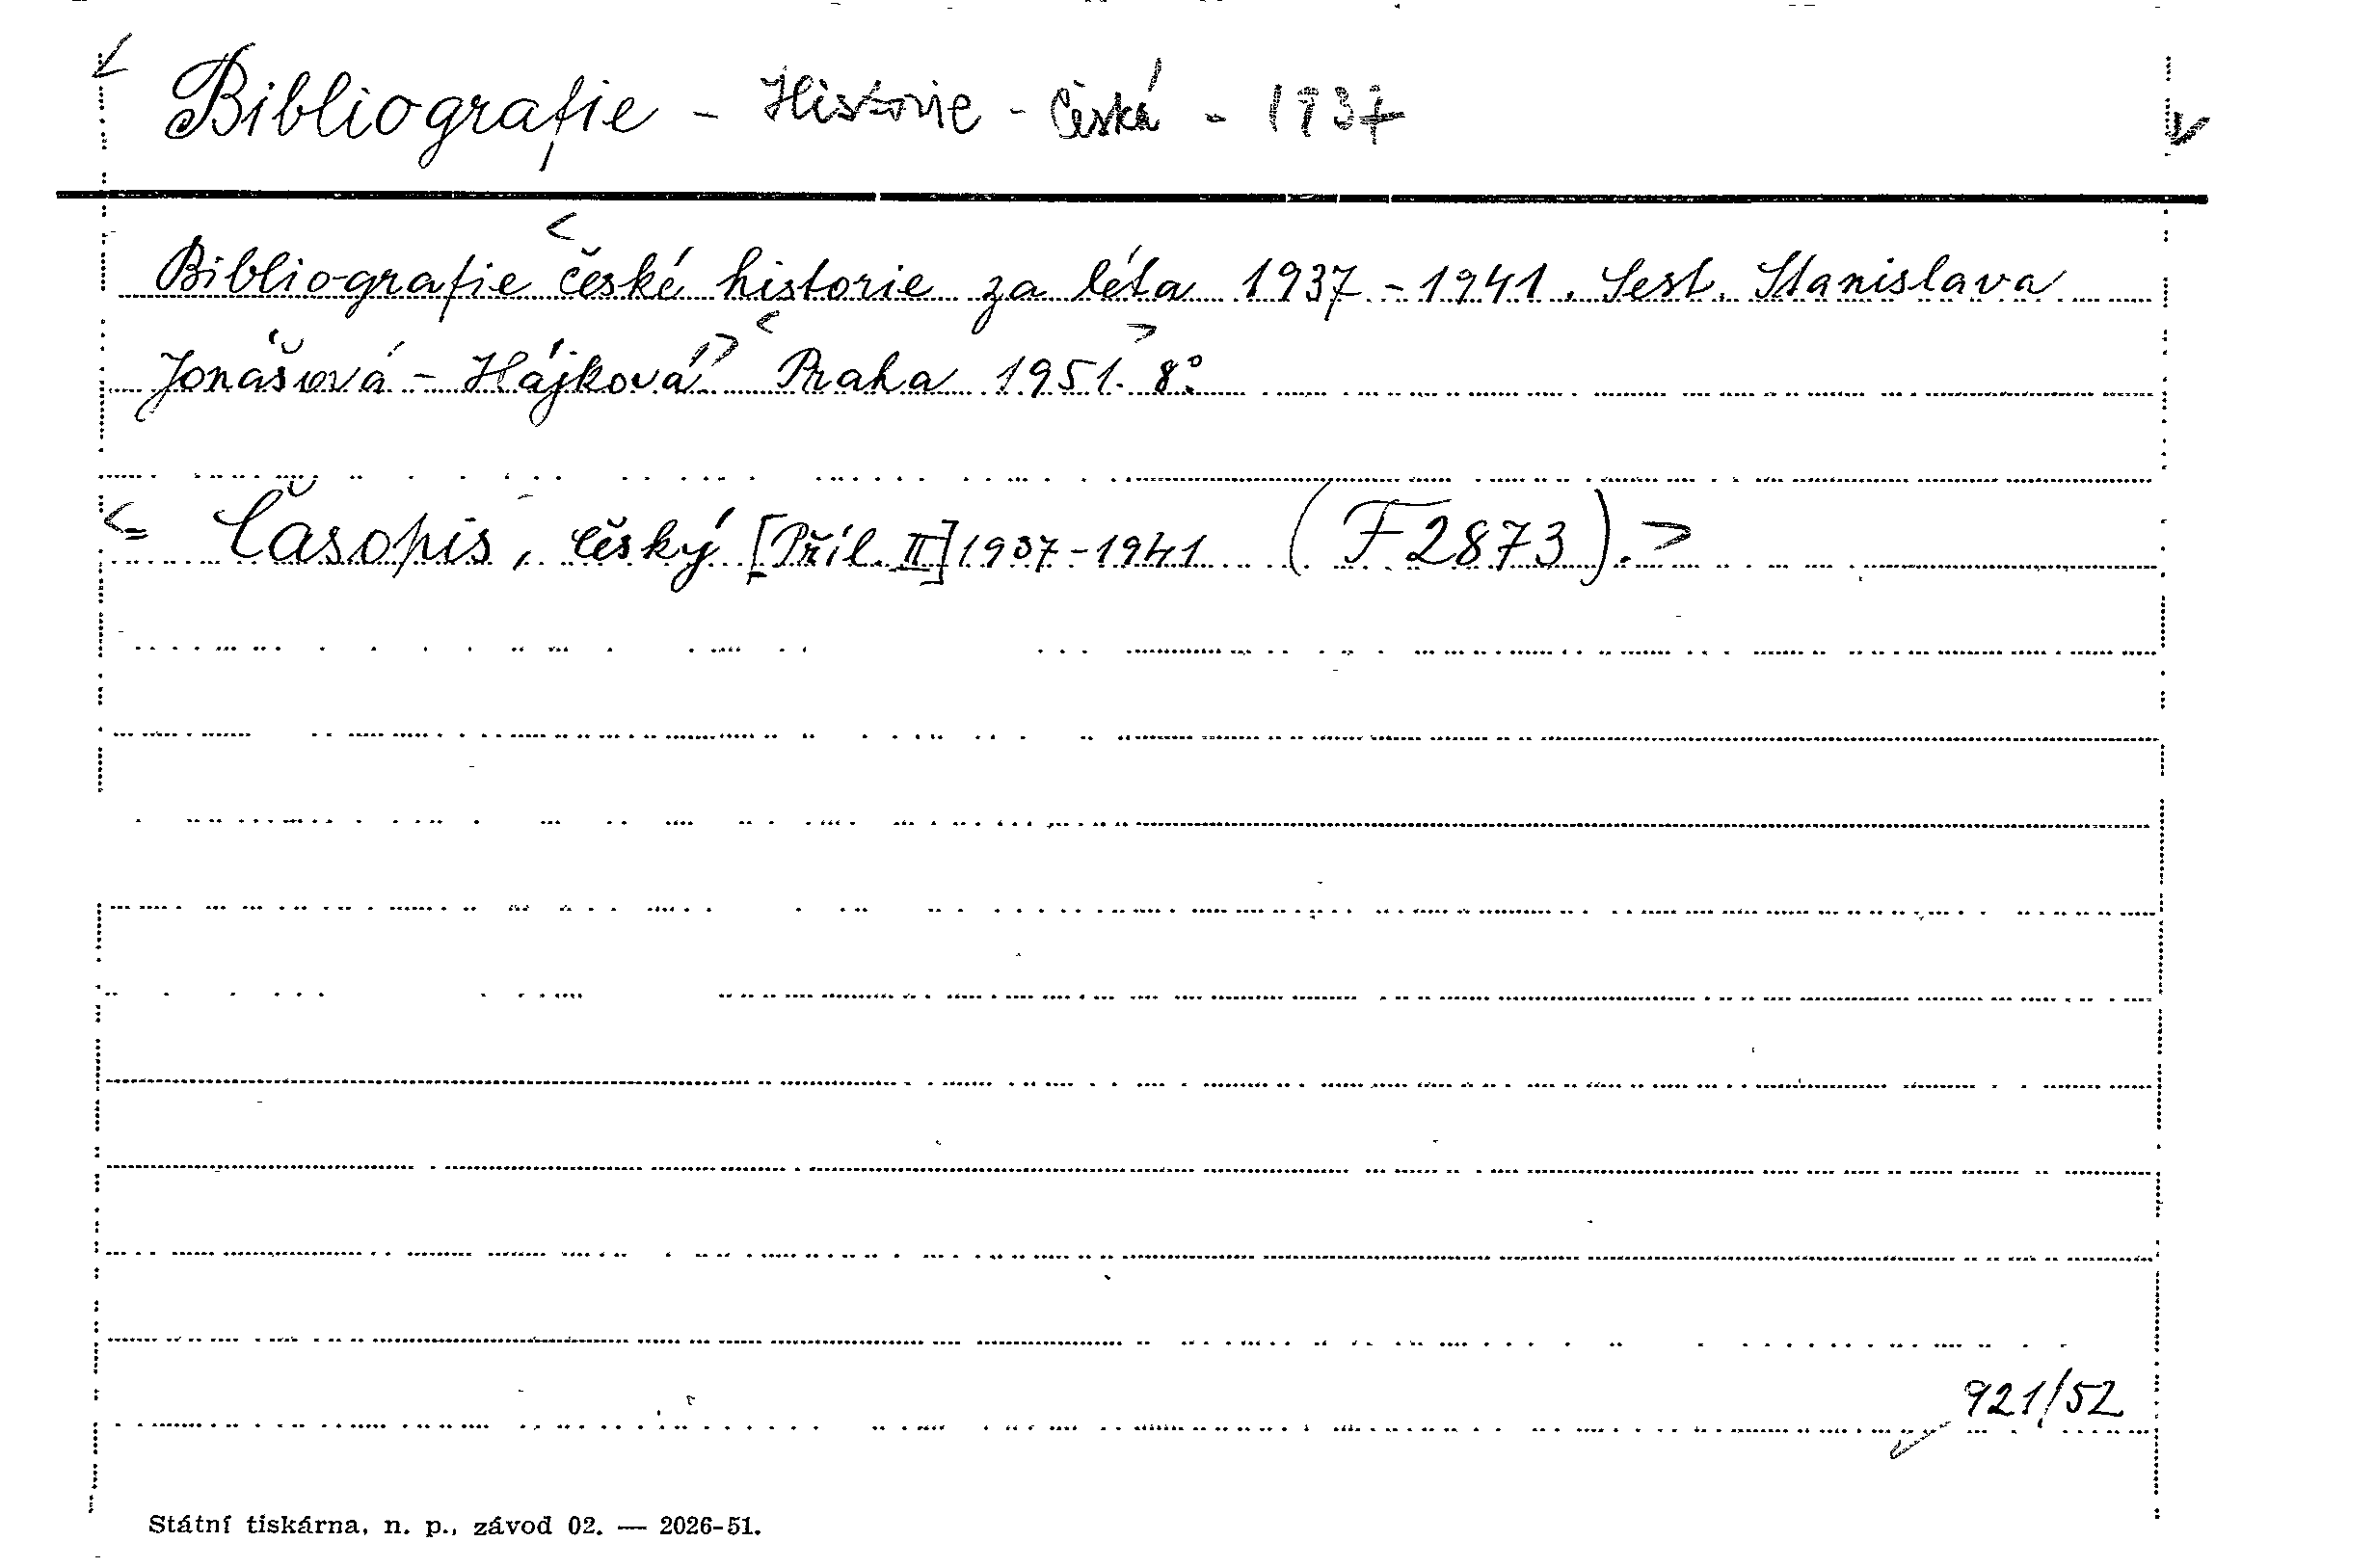 Bibliografie - Historie - česká - 1937
Bibliografie české historie za léta 1937-1941. Sest. Stanislava
Jonášová - Hájková. Praha 1951. 8°.
Časopis, český [Příl. II] 1937-1941 (F 2873).
921/52
Státní tiskárna, n. p., závod 02. — 2026-51.